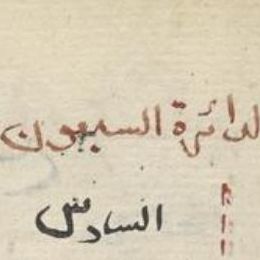 لدائرة السبعون
السادس